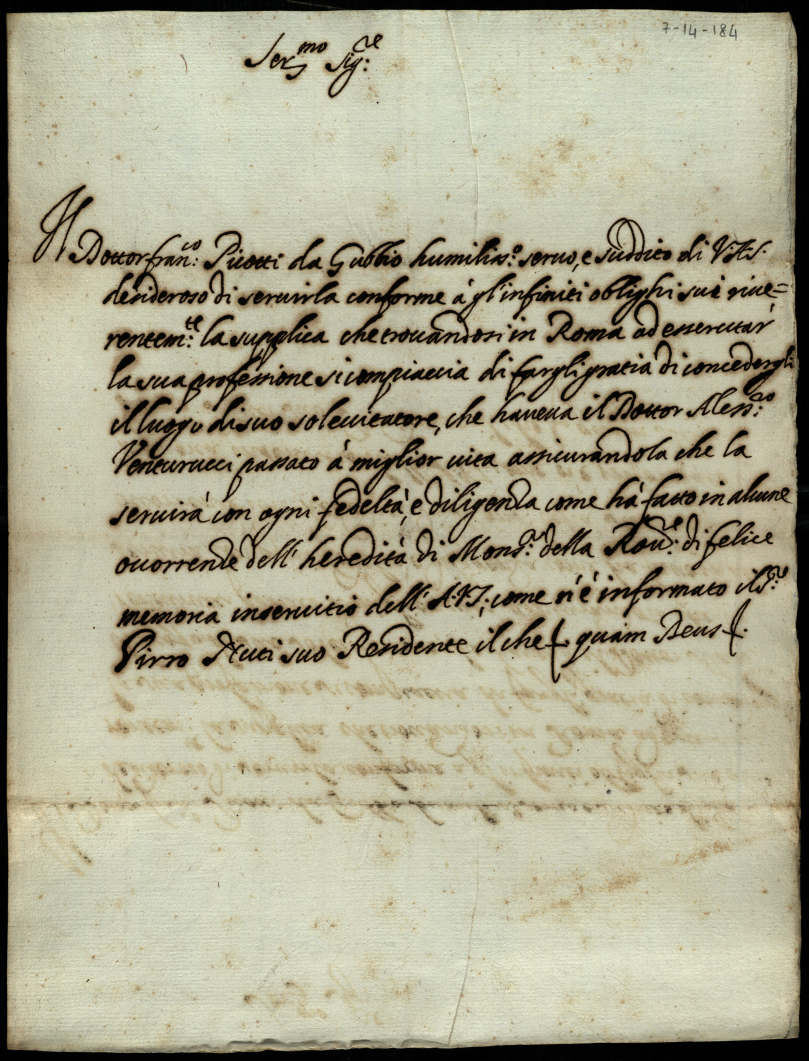 7-14-184
Ser.mo Sig.re
Il Dottor Fran.co Picotti da Gubbio humilis.o seruo, e suddito di V.A.S.
desideroso di seruirla conforme à gl'infiniti oblighi suoi riue=
rentem.te la supplica che trouandosi in Roma ad essercitar
la sua professione si compiaccia di fargli gratia di concedergli
il luogo di suo solecitatore, che haueua il Dottor Aless.ro
Venturucci passato à miglior uita assicurandola che la
seruirà con ogni fedeltà, e diligenza come hà fatto in alcune
occorrenze dell'heredità di Mons.re della Rou.e di felice
memoria in seruitio dell'A.V.S., come n'è informato il S.re
Pirro Nuti suo Residente il che quam Deus